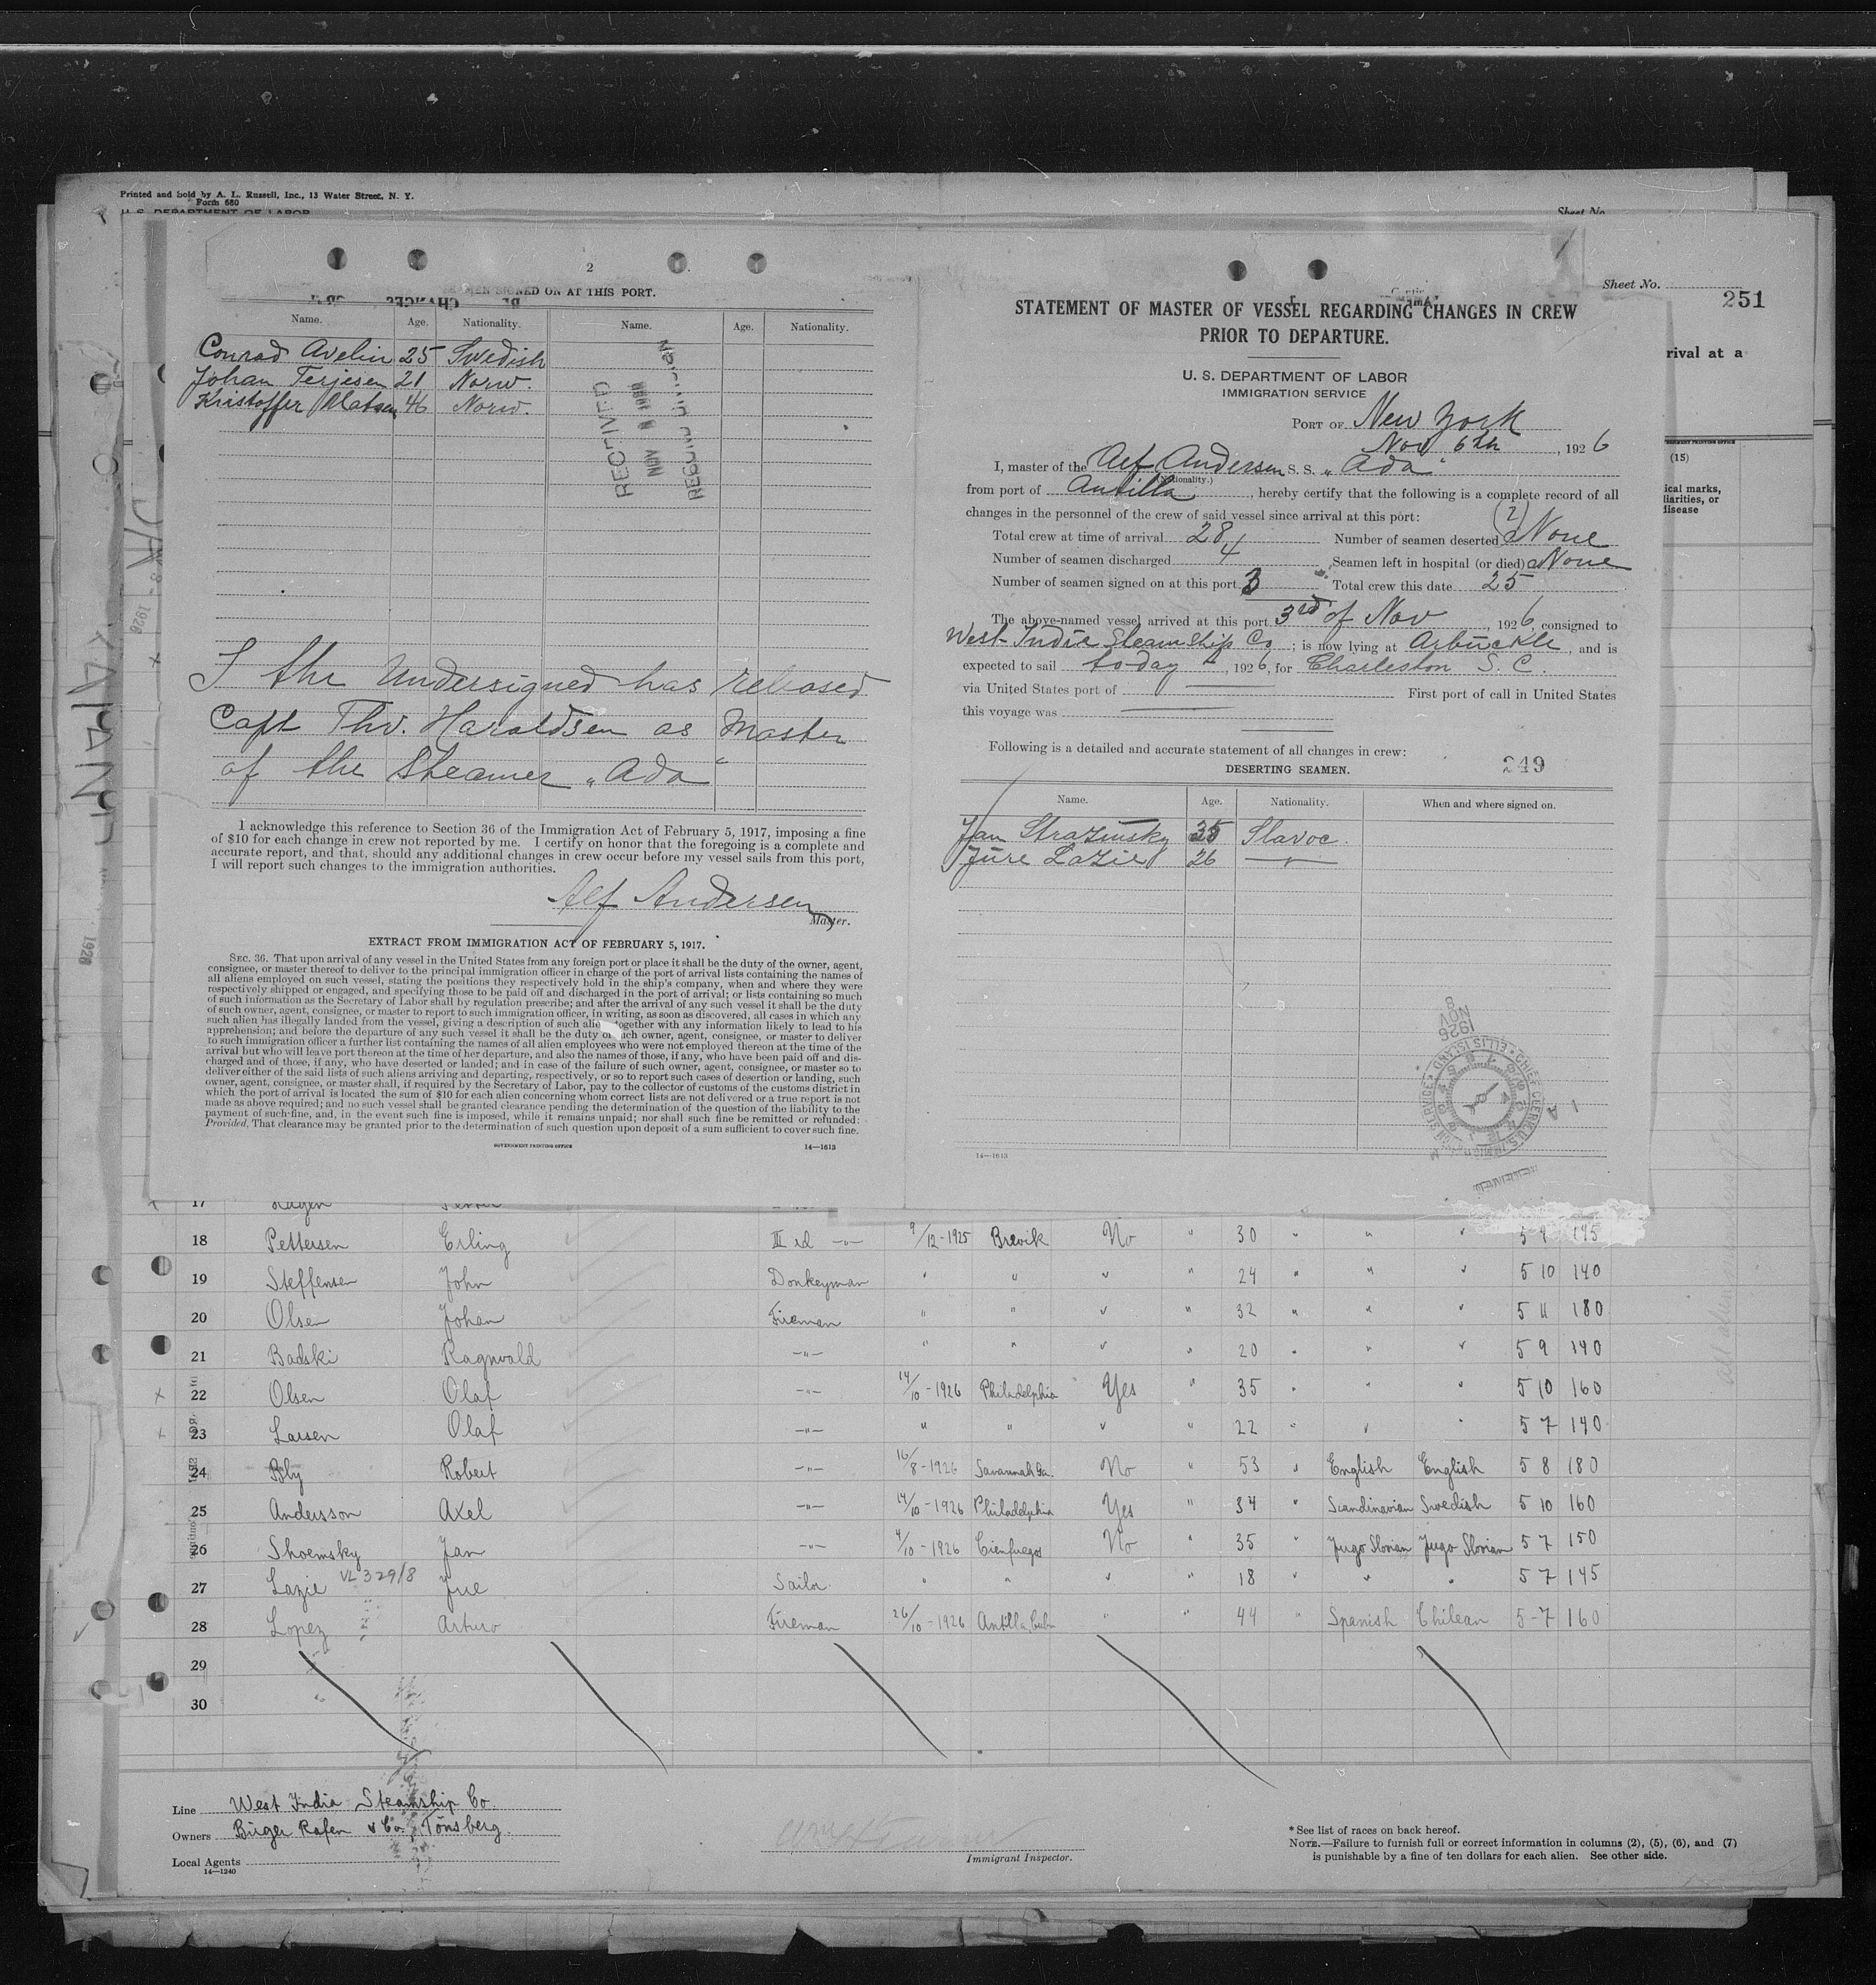 Printed and Sold by A. L. Russell, Inc., 13 Water Street, N. Y.
Form 680
U. S. DEPARTMENT OF LABOR
Sheet No.
2
SEAMEN SIGNED ON AT THIS PORT.
Name. Age. Nationality. Name. Age. Nationality.
Conrad Avelin 25 Swedish
Johan Terjesen 21 Norw.
Kristoffer 46 Norw.
RECEIVED
NOV
I the Undersigned has relased
Capt Thv. Haraldsen as Master
of the Steamer „Ada“
I acknowledge this reference to Section 36 of the Immigration Act of February 5, 1917, imposing a fine
of $10 for each change in crew not reported by me. I certify on honor that the foregoing is a complete and
accurate report, and that, should any additional changes in crew occur before my vessel sails from this port,
I will report such changes to the immigration authorities.
Alf Andersen
Master.
EXTRACT FROM IMMIGRATION ACT OF FEBRUARY 5, 1917.
SEC. 36. That upon arrival of any vessel in the United States from any foreign port or place it shall be the duty of the owner, agent,
consignee, or master thereof to deliver to the principal immigration officer in charge of the port of arrival lists containing the names of
all aliens employed on such vessel, stating the positions they respectively hold in the ship's company, when and where they were
respectively shipped or engaged, and specifying those to be paid off and discharged in the port of arrival; or lists containing so much
of such information as the Secretary of Labor shall by regulation prescribe; and after the arrival of any such vessel it shall be the duty
of such owner, agent, consignee, or master to report to such immigration officer, in writing, as soon as discovered, all cases in which any
such alien has illegally landed from the vessel, giving a description of such alie together with any information likely to lead to his
apprehension; and before the departure of any such vessel it shall be the duty of such owner, agent, consignee, or master to deliver
to such immigration officer a further list containing the names of all alien employees who were not employed thereon at the time of the
arrival but who will leave port thereon at the time of her departure, and also the names of those, if any, who have been paid off and dis-
charged and of those, if any, who have deserted or landed; and in case of the failure of such owner, agent, consignee, or master so to
deliver either of the said lists of such aliens arriving and departing, respectively, or so to report such cases of desertion or landing, such
owner, agent, consignee, or master shall, if required by the Secretary of Labor, pay to the collector of customs of the customs district in
which the port of arrival is located the sum of $10 for each alien concerning whom correct lists are not delivered or a true report is not
made as above required; and no such vessel shall be granted clearance pending the determination of the question of the liability to the
payment of such fine, and, in the event such fine is imposed, while it remains unpaid; nor shall such fine be remitted or refunded:
Provided, That clearance may be granted prior to the determination of such question upon deposit of a sum sufficient to cover such fine.
GOVERNMENT PRINTING OFFICE 14—1613
Sheet No.
251
STATEMENT OF MASTER OF VESSEL REGARDING CHANGES IN CREW
PRIOR TO DEPARTURE.
U. S. DEPARTMENT OF LABOR
IMMIGRATION SERVICE
PORT OF New York
Nov 6th, 1926
I, master of the Alf Andersen S. S. „Ada“
(Nationality.)
from port of Antilla, hereby certify that the following is a complete record of all
changes in the personnel of the crew of said vessel since arrival at this port:
Total crew at time of arrival 28 Number of seamen deserted (2) None
Number of seamen discharged 4 Seamen left in hospital (or died) None
Number of seamen signed on at this port 3 Total crew this date 25
The above-named vessel arrived at this port 3rd of Nov, 1926, consigned to
West-India Steamship Co; is now lying at Arbuckle, and is
expected to sail to-day, 1926, for Charleston S. C.
via United States port of First port of call in United States
this voyage was
Following is a detailed and accurate statement of all changes in crew:
DESERTING SEAMEN.
249
Name. Age. Nationality. When and where signed on.
Jan Strazinsky 35 Slavoc.
Jure Lazie 26
NOV 8 1926
14—1613
rival at a
(15)
ical marks,
liarities, or
disease
17 Hagen
18 Pettersen Erling III rd —"— 9/12-1925 Brevik No " 30 " " " 5 9 145
19 Steffensen John Donkeyman " " " " 24 " " " 5 10 140
20 Olsen Johan Fireman " " " " 32 " " " 5 11 180
21 Badski Ragnvald —"— " " " " 20 " " " 5 9 140
22 Olsen Olaf —"— 14/10-1926 Philadelphia Yes " 35 " " " 5 10 160
23 Larsen Olaf —"— " " " " 22 " " " 5 7 140
24 Bly Robert —"— 16/8-1926 Savannah Ga. No " 53 " English English 5 8 180
25 Andersson Axel —"— 14/10-1926 Philadelphia Yes " 34 " Scandinavian Swedish 5 10 160
26 Shoemsky Jan —"— 4/10-1926 Cienfuegos No " 35 " Jugo Slovian Jugo Slovian 5 7 150
27 Lazie VL 329/8 Jue Sailor " " " " 18 " " " 5 7 145
28 Lopez Arturo Fireman 26/10-1926 Antilla, Cuba " " 44 " Spanish Chilean 5-7 160
29
30
Line West India Steamship Co.
Owners Birger Rafen & Co., Tönsberg.
Local Agents
14—1240
Immigrant Inspector.
* See list of races on back hereof.
NOTE.—Failure to furnish full or correct information in columns (2), (5), (6), and (7)
is punishable by a fine of ten dollars for each alien. See other side.